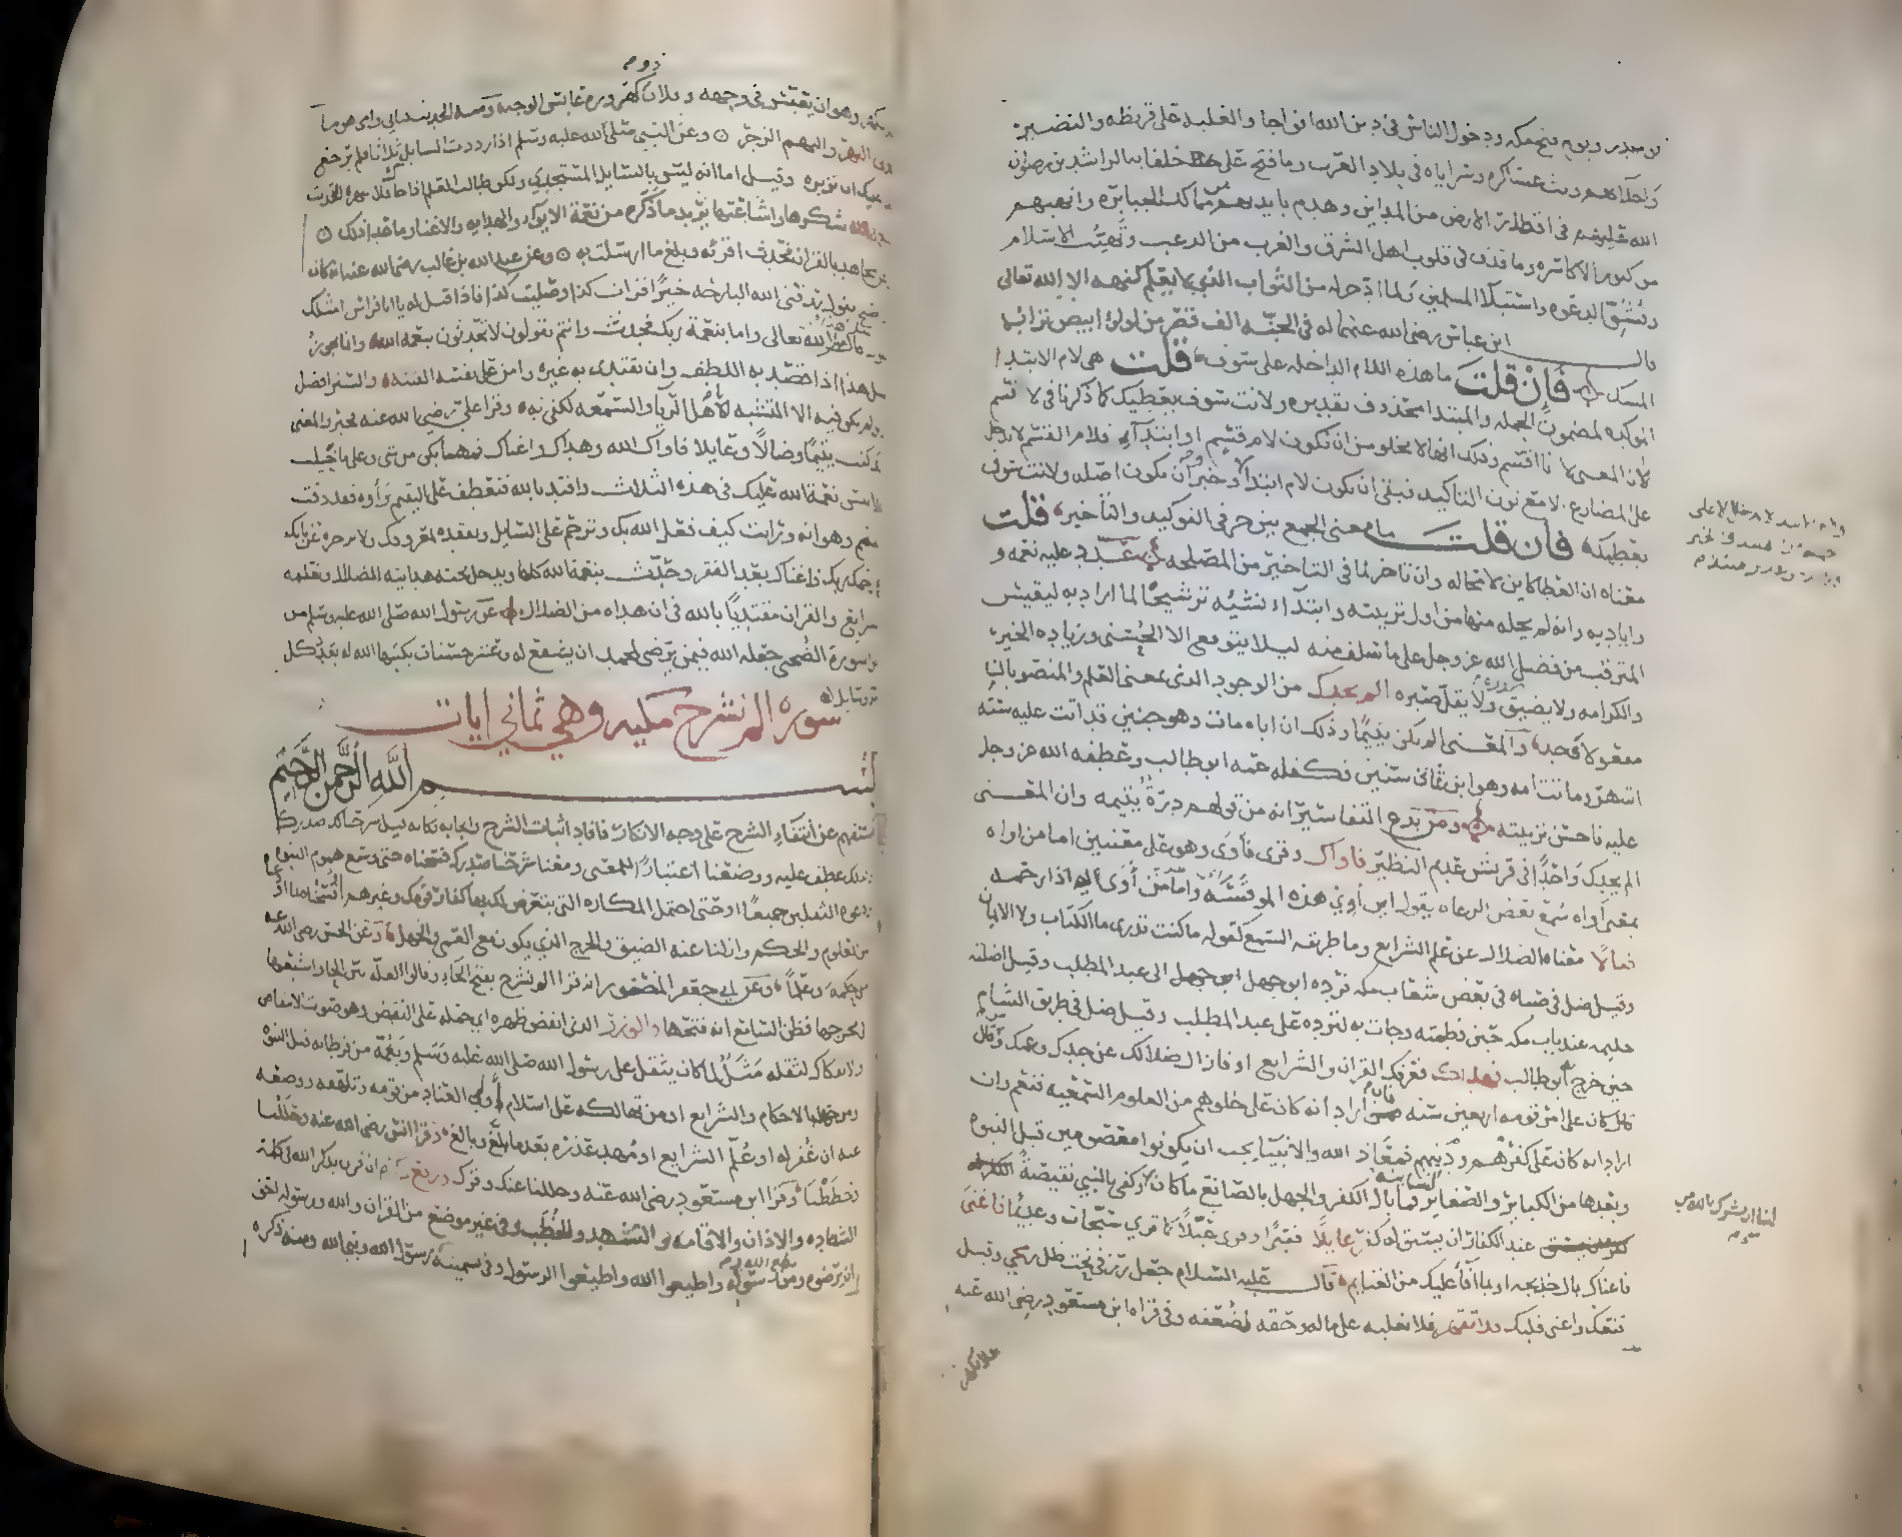 يوم بدر ويوم فتح مكه ودخول الناس في دين الله افواجا والغلبه على قريظه والنضير
واجلآاهم وبث عساكره وسراياه في بلاد العرب وما فتح على خلفايه الراشدين رضوان
الله عليهم في اقطار الارض من المداين وهدم بايديهم من ممالك الجبابره وانهبهم
من كنوز الاكاسره وما قذف في قلوب اهل الشرق والغرب من الرعب وتهيب الاسلام
وفشو الدعوه واستيلآ المسلمين ولما ادخر له من الثواب الذي لا يعلم كنهه الا الله تعالى
قال ابن عباس رضي الله عنهما له في الجنه الف قصر من لولؤ ابيض ترابها
المسك فان قلت ما هذه اللام الداخله على سوف قلت هي لام الابتدا
الموكده لمضمون الجمله والمبتدا محذوف تقديره ولانت سوف يعطيك كما ذكرنا في لا اقسم
لان المعنى لانا اقسم وذلك انها لا يخلو من ان تكون لام قسم او ابتدآ فلام القسم لا تدخل
على المضارع الا مع نون التاكيد فبقى ان تكون لام ابتدا وخبر وان يكون اصله ولانت سوف
يعطيك فان قلت ما معنى الجمع بين حرفي التوكيد والتاخير قلت
معناه ان العطا كاين لا محاله وان تاخر لما في التاخير من المصلحه عدد عليه نعمه و
واياديه وانه لم يخله منها من اول تربيته وابتدآء نشئه ترشيحًا لما اراد به ليقيس
المترقب من فضل الله عز وجل على ما سلف منه ليلا يتوقع الا الحسنى وزياده الخير
والكرامه ولا يضيق صدره ولا يقل صبره الم يجدك من الوجود الذي بمعنى العلم والمنصوبان
مفعولا وجد والمعنى الم تكن يتيمًا وذلك ان اباه مات وهو جنين قد اتت عليه سته
اشهر وماتت امه وهو ابن ثماني سنين فكفله عمه ابو طالب وعطفه الله عز وجل
عليه فاحسن تربيته ومن بدع التفاسير انه من قولهم درةٌ يتيمه وان المعنى
الم يجدك واحدًا في قريش عديم النظير فاواك وقرى فأوَى وهو على معنيين اما من اواه
بمعنى آواه سُمع بعض الرعاه يقول اين آوي هذه الموقسه واما من أوَى له اذا رحمه
ضالًا معناه الضلال عن علم الشرايع وما طريقه السمع كقوله ما كنت تدري ما الكتاب ولا الايمان
وقيل ضل في صباه في بعض شعاب مكه فرده ابو جهل الى عبد المطلب وقيل اضلته
حليمه عند باب مكه حين فطمته وجات به لترده على عبد المطلب وقيل ضل في طريق الشام
حين خرج به ابو طالب فهداك فعرفك القران والشرايع او فازال ضلالك عن جدك وعمك ومن قال
كان على امر قومه اربعين سنه فان اراد انه كان على خلوهم من العلوم السمعيه فنعم وان
اراد انه كان على كفرهم ودينهم فمعاذ الله والانبيآ يجب ان يكونوا معصومين قبل النبوه
وبعدها من الكباير والصغاير الشاينه فما بال الكفر والجهل بالصانع ما كان وكفى بالنبي نقيصةً
عند الكفار ان يسبق له كفر عايلًا فقيرًا وقرى عيّلًا كما قرى سيحات وعديمًا فاغنى
فاغناك بمال خديجه او بما افآ عليك من الغنايم قال عليه السلام جعل رزقي تحت ظل رمحي وقيل
قنعك واغنى قلبك فلا تقهر فلا تغلبه على ماله وحقه لضعفه وفي قراه ابن مسعود رضي الله عنه
فلا تكهر
يوم
تكهر وهو ان يعبس في وجهه وفلان ذو كهروره عابس الوجه ومنه الحديث فبابي وامي هو ما
كهرني النهر والنهم الزجر وعن النبي صلى الله عليه وسلم اذا رددت السايل ثلاثا فلم يرجع
فلا عليك ان تزبره وقيل اما انه ليس بالسايل المستجدي ولكن طالب العلم اذا جاك فلا تنهره التحديث
بنعمة الله شكرها واشاعتها يريد ما ذكره من نعمة الايوآء والهدايه والاغنا وما عدا ذلك
عن مجاهد بالقران فحدث اقرئه وبلغ ما ارسلت به وعن عبد الله بن غالب رضي الله عنه انه كان
اصبح يقول رزقني الله البارحه خيرًا قرات كذا وصليت كذا فاذا قيل له يا ابا فراس امثلك
يقول مثل هذا قال يقول الله تعالى واما بنعمة ربك فحدث وانتم تقولون لا تحدثون بنعمه الله وانما يجوز
مثل هذا اذا قصد به اللطف وان يقتدى به غيره وامن على نفسه الفتنه والستر افضل
ولو لم يكن فيه الا التشبه باهل الريا والسمعه لكفى به وقرا علي رضي الله عنه فخبر والمعنى
انك كنت يتيمًا وضالًا وعايلا فاواك الله وهداك واغناك فمهما يكن من شي وعلى ما خيلت
فلا تنس نعمة الله عليك في هذه الثلاث واقتد بالله فتعطف على اليتيم وآوه فقد ذقت
اليتم وهوانه ورايت كيف فعل الله بك وترحم على السايل وتفقده بمعروفك ولا تزجره عن بابك
كما رحمك ربك فاغناك بعد الفقر وحدث بنعمة الله كلها ويدخل تحته هدايته الضلال وتعليمه
الشرايع والقران مقتديًا بالله في ان هداه من الضلال عن رسول الله صلى الله عليه وسلم من
قرا سورة الضحى جعله الله فيمن يرضى لمحمد ان يشفع له وعشر حسنات يكتبها الله له بعدد كل
يتيم وسايل
سوره الم نشرح مكيه وهي ثماني ايات
بسم الله الرحمن الرحيم
استفهم عن انتفآء الشرح على وجه الانكار فافاد اثبات الشرح وايجابه فكانه قيل شرحنا لك صدرك
فلذلك عطف عليه ووضعنا اعتبارًا للمعنى ومعنا شرحنا صدرك فسحناه حتى وسع هموم النبوه
ودعوه الثقلين جميعًا او حتى احتمل المكاره التي يتعرض لك بها كفار قومك وغيرهم او فسحناه بما اودعناه
من العلوم والحكم وازلنا عنه الضيق والحرج الذي يكون مع العمى والجهل وعن الحسن رضي الله عنه
ملى حكمه وعلمًا وعن ابي جعفر المنصور انه قرا الم نشرح بفتح الحاء وقالوا لعله بين الحا واشبعها
في مخرجها فظن السامع انه فتحها والوزر الذي انقض ظهره اي حمله على النقيض وهو صوت الانتقاض
والانفكاك لثقله مَثَلٌ لما كان يثقل على رسول الله صلى الله عليه وسلم ويغمه من فرطاته قبل النبوه
ومن جهله بالاحكام والشرايع او من تهالكه على اسلام أولي العناد من قومه وتلهفه ووضعه
عنه ان غُفر له او عُلّم الشرايع او مُهد عذره بعد ما بلّغ وبالغ وقرا انس رضي الله عنه وحللنا
وحططنا وقرا ابن مسعود رضي الله عنه وحللنا عنك وقرك ورفع ذكره ان قرن بذكر الله في كلمة
الشهاده والاذان والاقامه والتشهد والخطب وفي غير موضع من القران والله ورسوله احق
ان يرضوه ومن يطع الله ورسوله واطيعوا الله واطيعوا الرسول وفي تسميته رسول الله ونبي الله ومنه ذكره